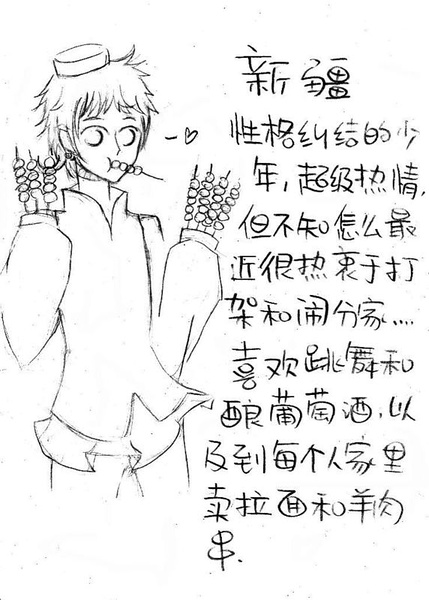 新疆
性格纠结的少
年，超级热情，
但不知怎么最
近很热衷于打
架和闹分家....
喜欢跳舞和
酿葡萄酒，以
及到每个人家里
卖拉面和羊肉
串.